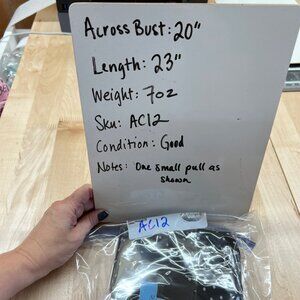 Across Bust: 20"
Length: 23"
Weight: 7oz
Sku: AC12
Condition: Good
Notes: One small pull as
shown
AC12